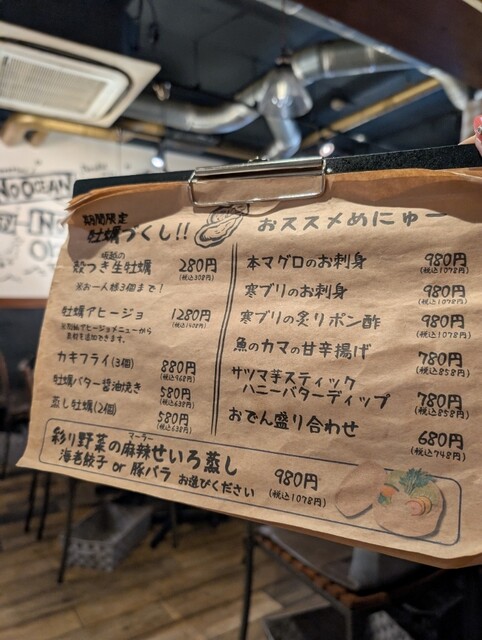 NO OCEAN
期間限定
牡蠣づくし!!
殻つき生牡蠣
280円
(税込308円)
※お一人様3個まで!
牡蠣アヒージョ
1280円
(税込1408円)
カキフライ(3個)
880円
(税込968円)
牡蠣バター醤油焼き
580円
(税込638円)
蒸し牡蠣(2個)
580円
(税込638円)
おススメめにゅー
本マグロのお刺身
980円
(税込1078円)
寒ブリのお刺身
980円
(税込1078円)
寒ブリの炙りポン酢
980円
(税込1078円)
魚のカマの甘辛揚げ
780円
(税込858円)
サツマ芋スティック
ハニーバターディップ
780円
(税込858円)
おでん盛り合わせ
680円
(税込748円)
マーラー
彩り野菜の麻辣せいろ蒸し
海老餃子 or 豚バラ お選びください
980円
(税込1078円)